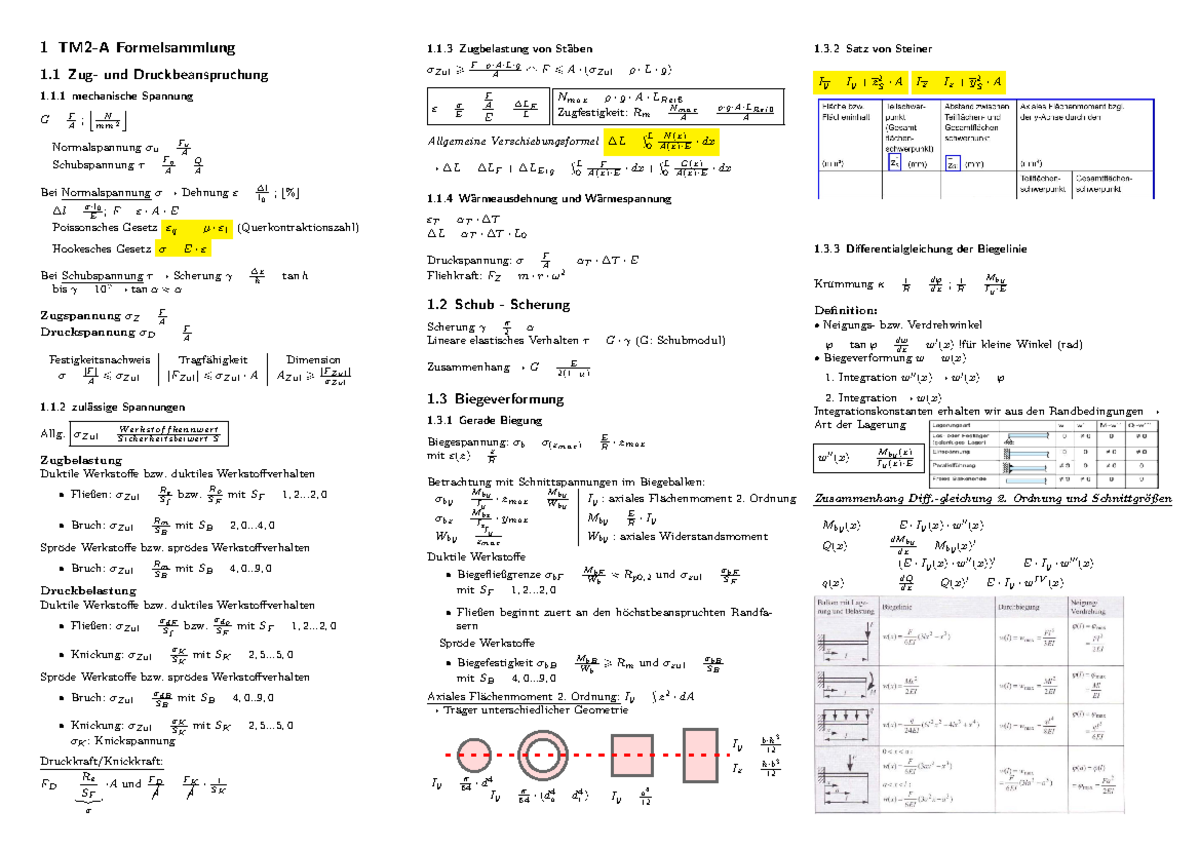 1 TM2-A Formelsammlung
1.1 Zug- und Druckbeanspruchung
1.1.1 mechanische Spannung
G F/A ; [N/mm²]
Normalspannung σ_N F_N/A
Schubspannung τ F_a/A Q/A
Bei Normalspannung σ → Dehnung ε Δl/l_0 ; [%]
Δl σ·l_0/E ; F ε · A · E
Poissonsches Gesetz ε_q μ · ε_l (Querkontraktionszahl)
Hookesches Gesetz σ E · ε
Bei Schubspannung τ → Scherung γ Δx/h tan h
bis γ 10° → tan α ≈ α
Zugspannung σ_Z F/A
Druckspannung σ_D F/A
Festigkeitsnachweis Tragfähigkeit Dimension
σ |F|/A ⩽ σ_Zul |F_Zul| ⩽ σ_Zul · A A_Zul ⩾ |F_Zul|/σ_Zul
1.1.2 zulässige Spannungen
Allg. σ_Zul Werkstoffkennwert/Sicherheitsbeiwert S
Zugbelastung
Duktile Werkstoffe bzw. duktiles Werkstoffverhalten
• Fließen: σ_Zul R_e/S_f bzw. R_e/S_F mit S_F 1, 2...2, 0
• Bruch: σ_Zul R_m/S_B mit S_B 2, 0...4, 0
Spröde Werkstoffe bzw. sprödes Werkstoffverhalten
• Bruch: σ_Zul R_m/S_B mit S_B 4, 0...9, 0
Druckbelastung
Duktile Werkstoffe bzw. duktiles Werkstoffverhalten
• Fließen: σ_Zul σ_dF/S_f bzw. σ_d0/S_F mit S_F 1, 2...2, 0
• Knickung: σ_Zul σ_K/S_K mit S_K 2, 5...5, 0
Spröde Werkstoffe bzw. sprödes Werkstoffverhalten
• Bruch: σ_Zul σ_dB/S_B mit S_B 4, 0...9, 0
• Knickung: σ_Zul σ_K/S_K mit S_K 2, 5...5, 0
σ_K: Knickspannung
Druckkraft/Knickkraft:
F_D R_e/S_F · A und F_D/A F_K/A · 1/S_K
σ
1.1.3 Zugbelastung von Stäben
σ_Zul ⩾ F ρ·A·L·g/A ⇔ F ⩽ A · (σ_Zul ρ · L · g)
ε σ/E F/A/E ΔL_F/L
N_max ρ · g · A · L_Reiß
Zugfestigkeit: R_m N_max/A ρ·g·A·L_Reiß/A
Allgemeine Verschiebungsformel ΔL ∫_0^L N(x)/A(x)·E · dx
→ ΔL ΔL_F + ΔL_Eig ∫_0^L F/A(x)·E · dx + ∫_0^L G(x)/A(x)·E · dx
1.1.4 Wärmeausdehnung und Wärmespannung
ε_T α_T · ΔT
ΔL α_T · ΔT · L_0
Druckspannung: σ F/A α_T · ΔT · E
Fliehkraft: F_Z m · r · ω²
1.2 Schub - Scherung
Scherung γ π/2 α
Lineare elastisches Verhalten τ G · γ (G: Schubmodul)
Zusammenhang → G E/2(1 ν)
1.3 Biegeverformung
1.3.1 Gerade Biegung
Biegespannung: σ_b σ(z_max) E/R · z_max
mit ε(z) z/R
Betrachtung mit Schnittspannungen im Biegebalken:
σ_by M_by/I_y · z_max M_by/W_by I_y : axiales Flächenmoment 2. Ordnung
σ_bz M_bz/I_z · y_max M_by E/R · I_y
W_by I_y/z_max W_by : axiales Widerstandsmoment
Duktile Werkstoffe
• Biegefließgrenze σ_bF M_bF/W_b ≈ R_p0,2 und σ_zul σ_bF/S_F
mit S_F 1, 2...2, 0
• Fließen beginnt zuert an den höchstbeanspruchten Randfa-
sern
Spröde Werkstoffe
• Biegefestigkeit σ_bB M_bB/W_b ⩾ R_m und σ_zul σ_bB/S_B
mit S_B 4, 0...9, 0
Axiales Flächenmoment 2. Ordnung: I_y ∫ z² · dA
→ Träger unterschiedlicher Geometrie
I_y b·h³/12
I_z h·b³/12
I_y π/64 · d⁴
I_y π/64 · (d_a⁴ d_i⁴) I_y a⁴/12
1.3.2 Satz von Steiner
I_ȳ I_y + z̄_S² · A I_z̄ I_z + ȳ_S² · A
Fläche bzw. Flächeninhalt (mm²)
Teilschwerpunkt (Gesamtflächenschwerpunkt) z_S (mm)
Abstand zwischen Teilflächen- und Gesamtflächenschwerpunkt z̄_S (mm)
Axiales Flächenmoment bzgl. der y-Achse durch den (mm⁴)
Teilflächenschwerpunkt Gesamtflächenschwerpunkt
1.3.3 Differentialgleichung der Biegelinie
Krümmung κ 1/R dφ/dx ; 1/R M_by/I_y·E
Definition:
• Neigungs- bzw. Verdrehwinkel
φ tan φ dw/dx w'(x) !für kleine Winkel (rad)
• Biegeverformung w w(x)
1. Integration w''(x) → w'(x) φ
2. Integration → w(x)
Integrationskonstanten erhalten wir aus den Randbedingungen →
Art der Lagerung
w''(x) M_by(x)/I_y(x)·E
Lagerungsart w w' M~w'' Q~w'''
0 ≠0 0 ≠0
Einspannung 0 0 ≠0 ≠0
Parallelführung ≠0 0 ≠0 0
Freies Balkenende ≠0 ≠0 0 0
Zusammenhang Diff.-gleichung 2. Ordnung und Schnittgrößen
M_by(x) E · I_y(x) · w''(x)
Q(x) dM_by/dx M_by(x)'
(E · I_y(x) · w''(x))' E · I_y · w'''(x)
q(x) dQ/dx Q(x)' E · I_y · w^IV(x)
Balken mit Lagerung und Belastung Biegelinie Durchbiegung Neigung Verdrehung
w(x) = F/6EI (3lx² − x³) w(l) = w_max = Fl³/3EI φ(l) = φ_max = Fl²/2EI
w(x) = Mx²/2EI w(l) = w_max = Ml²/2EI φ(l) = φ_max = Ml/EI
w(x) = q/24EI (6l²x² − 4lx³ + x⁴) w(l) = w_max = ql⁴/8EI φ(l) = φ_max = ql³/6EI
0 < x < a :
w(x) = F/6EI (3ax² − x³)
a < x < l :
w(x) = F/6EI (3a²x − a³)
w(l) = w_max = F/6EI (3la² − a³) φ(a) = φ(l) = φ_max = Fa²/2EI